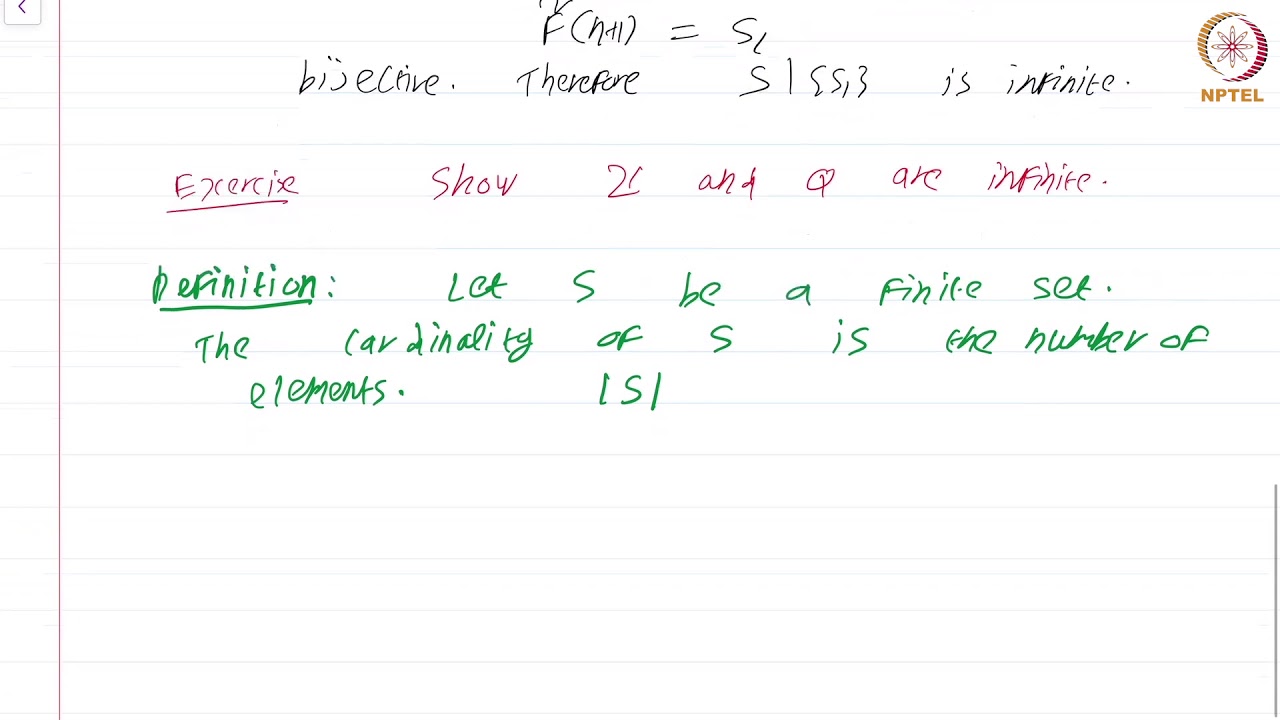 F̃(n+1) = S₁
bijective. Therefore S \ {S₁} is infinite.
NPTEL
Exercise Show ℤ and ℚ are infinite.
Definition: Let S be a finite set.
The cardinality of S is the number of
elements. |S|